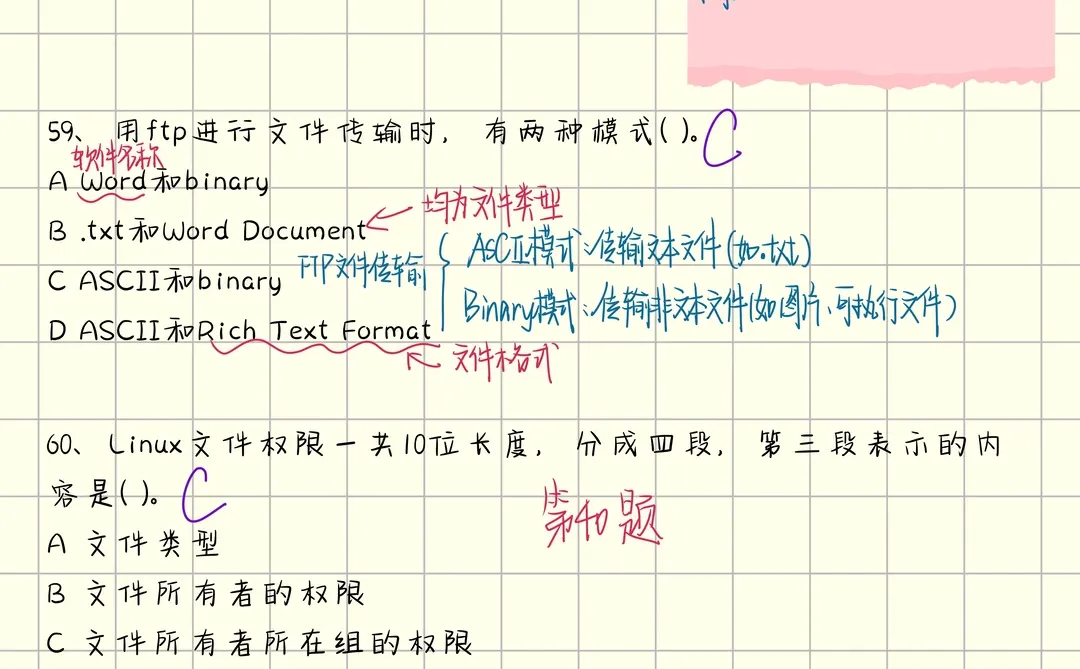 59、用ftp进行文件传输时，有两种模式()。C
软件名称
A Word和binary
B .txt和Word Document
均为文件类型
C ASCII和binary
FTP文件传输
ASCII模式:传输文本文件(如.txt)
Binary模式:传输非文本文件(如图片、可执行文件)
D ASCII和Rich Text Format
文件格式
60、Linux文件权限一共10位长度，分成四段，第三段表示的内
容是()。C
第40题
A 文件类型
B 文件所有者的权限
C 文件所有者所在组的权限